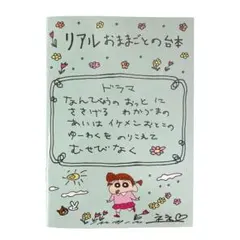 リアルおままごとの台本
ドラマ
なんびょうの おっと に
ささげる わかづまの
あいは イケメンおとこの
ゆーわくを のりこえて
むせびなく
ネネ